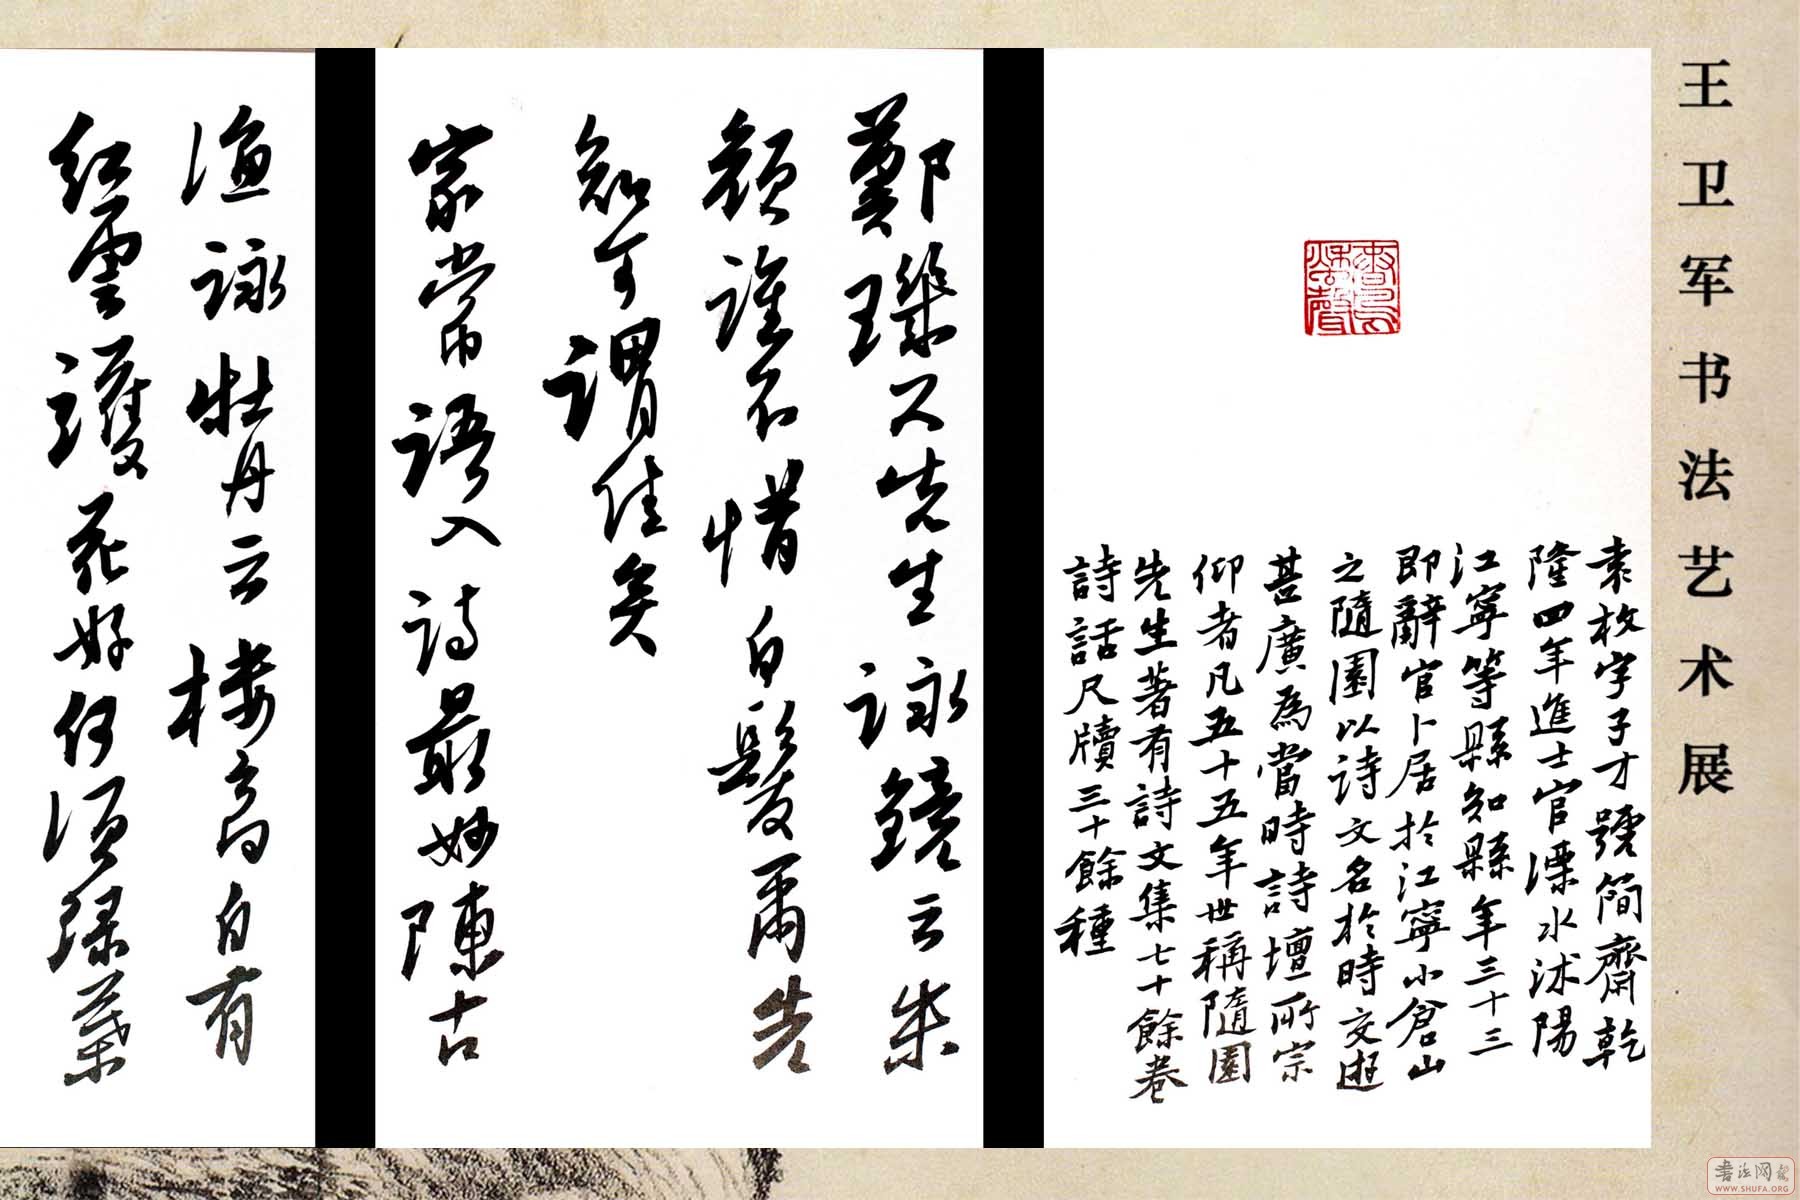 王卫军书法艺术展
袁枚字子才號簡齋乾
隆四年進士官溧水沭陽
江寧等縣知縣年三十三
即辭官卜居於江寧小倉山
之隨園以詩文名於時交遊
甚廣為當時詩壇所宗
仰者凡五十五年世稱隨園
先生著有詩文集七十餘卷
詩話尺牘三十餘種
鄭璣尺先生詠鏡云朱
顏誰不惜白髮爾先
知可謂佳矣
家常語入詩最妙陳古
漁詠牡丹云樓高自有
紅雲護花好何須綠葉
書法网
WWW.SHUFA.ORG